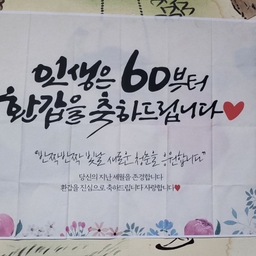 인생은 60부터
환갑을 축하드립니다♥
"반짝반짝 빛날 새로운 청춘을 응원합니다"
당신의 지난 세월을 존경합니다
환갑을 진심으로 축하드립니다 사랑합니다♥